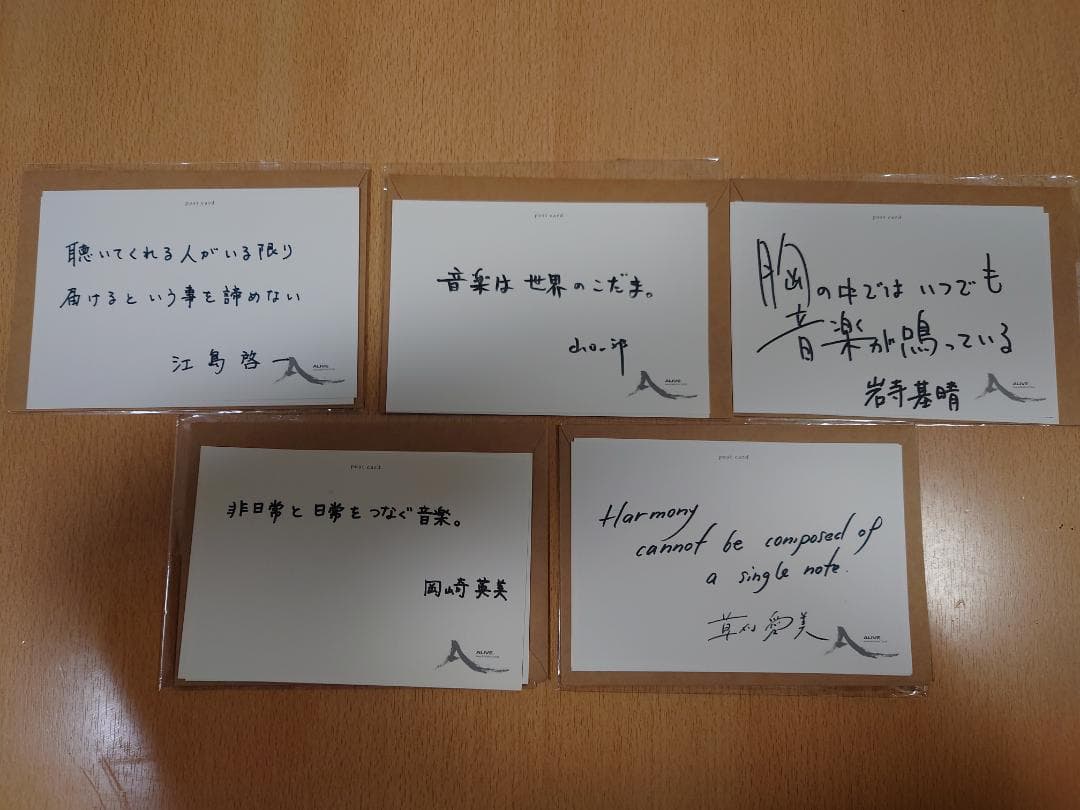 post card
聴いてくれる人がいる限り
届けるという事を諦めない
江島啓一
ALIVE
post card
音楽は世界のこだま。
山口一郎
ALIVE
post card
胸の中ではいつでも
音楽が鳴っている
岩寺基晴
ALIVE
post card
非日常と日常をつなぐ音楽。
岡崎英美
ALIVE
post card
Harmony
cannot be composed of
a single note.
草刈愛美
ALIVE